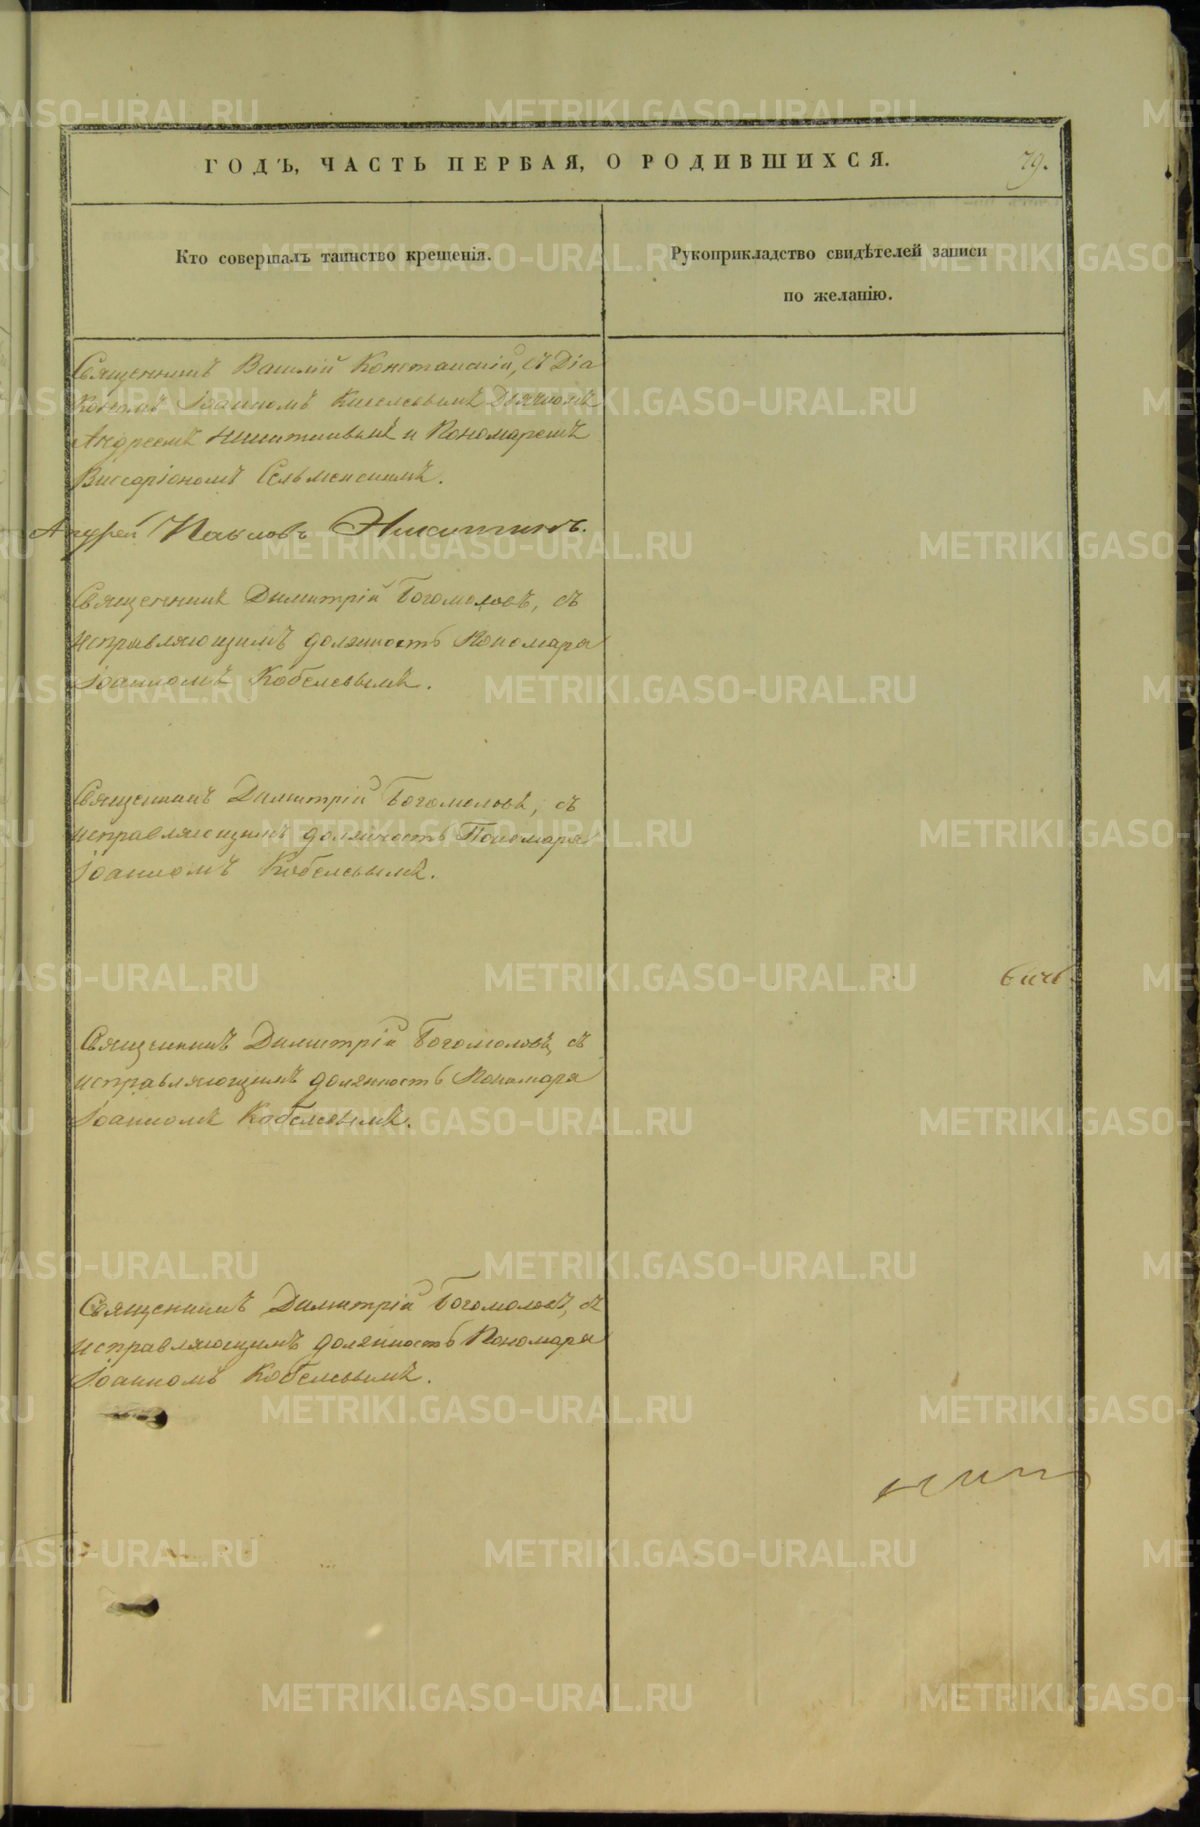 ГОДЪ, ЧАСТЬ ПЕРВАЯ, О РОДИВШИХСЯ.
79.
Кто совершалъ таинство крещенія.
Рукоприкладство свидѣтелей записи
по желанію.
Священникъ Василій Констанскій, съ Діа
кономъ Іоанномъ Киселевымъ Дьячкомъ
Андреемъ Никитинымъ и Пономаремъ
Виссаріономъ Сельменскимъ.
Андрей Павловъ Никитинъ.
Священникъ Димитрій Богомоловъ, съ
исправляющимъ должность Пономаря
Іоанномъ Кобелевымъ.
Священникъ Димитрій Богомоловъ, съ
исправляющимъ должность Пономаря
Іоанномъ Кобелевымъ.
Священникъ Димитрій Богомоловъ, съ
исправляющимъ должность Пономаря
Іоанномъ Кобелевымъ.
Священникъ Димитрій Богомоловъ, съ
исправляющимъ должность Пономаря
Іоанномъ Кобелевымъ.
METRIKI.GASO-URAL.RU